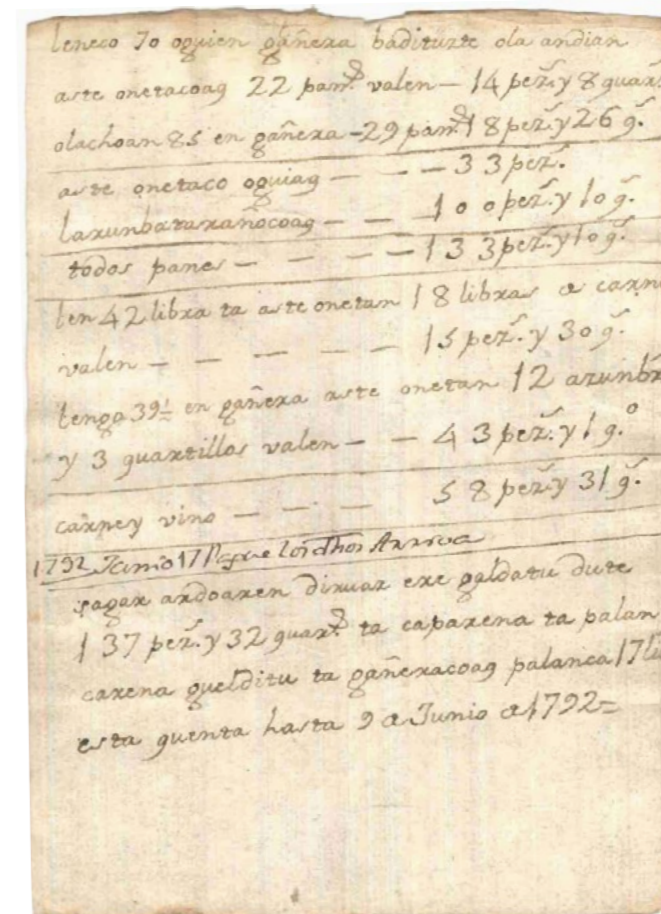 leneco 70 oguien gañera baditurte ola andian
aste onetacoag 22 pans valen — 14 pezs. y 8 quars.
olachoan 85 en gañera - 29 pans 18 pezs. y 26 qs.
aste onetaco oguiag — — — 33 pezs.
larunbataranocoag — — 100 pezs. y 10 qs.
todos panes — — — — 133 pezs. y 10 qs.
len 42 libra ta aste onetan 18 libras a carne
valen — — — — — 15 pezs. y 30 qs.
lengo 39½ en gañera aste onetan 12 azunbr
y 3 quartillos valen — — 4 3 pezs. y 1 q.o
carne y vino — — — 5 8 pezs. y 31 qs.
1792 Junio 17 los dhos
sagar ardoaren diruar ere galdatu dute
137 pezs. y 32 quars. ta caparena ta palan
carena guelditu ta gañeracoag palanca 17 li
esta quenta hasta 9 a Junio a 1792=